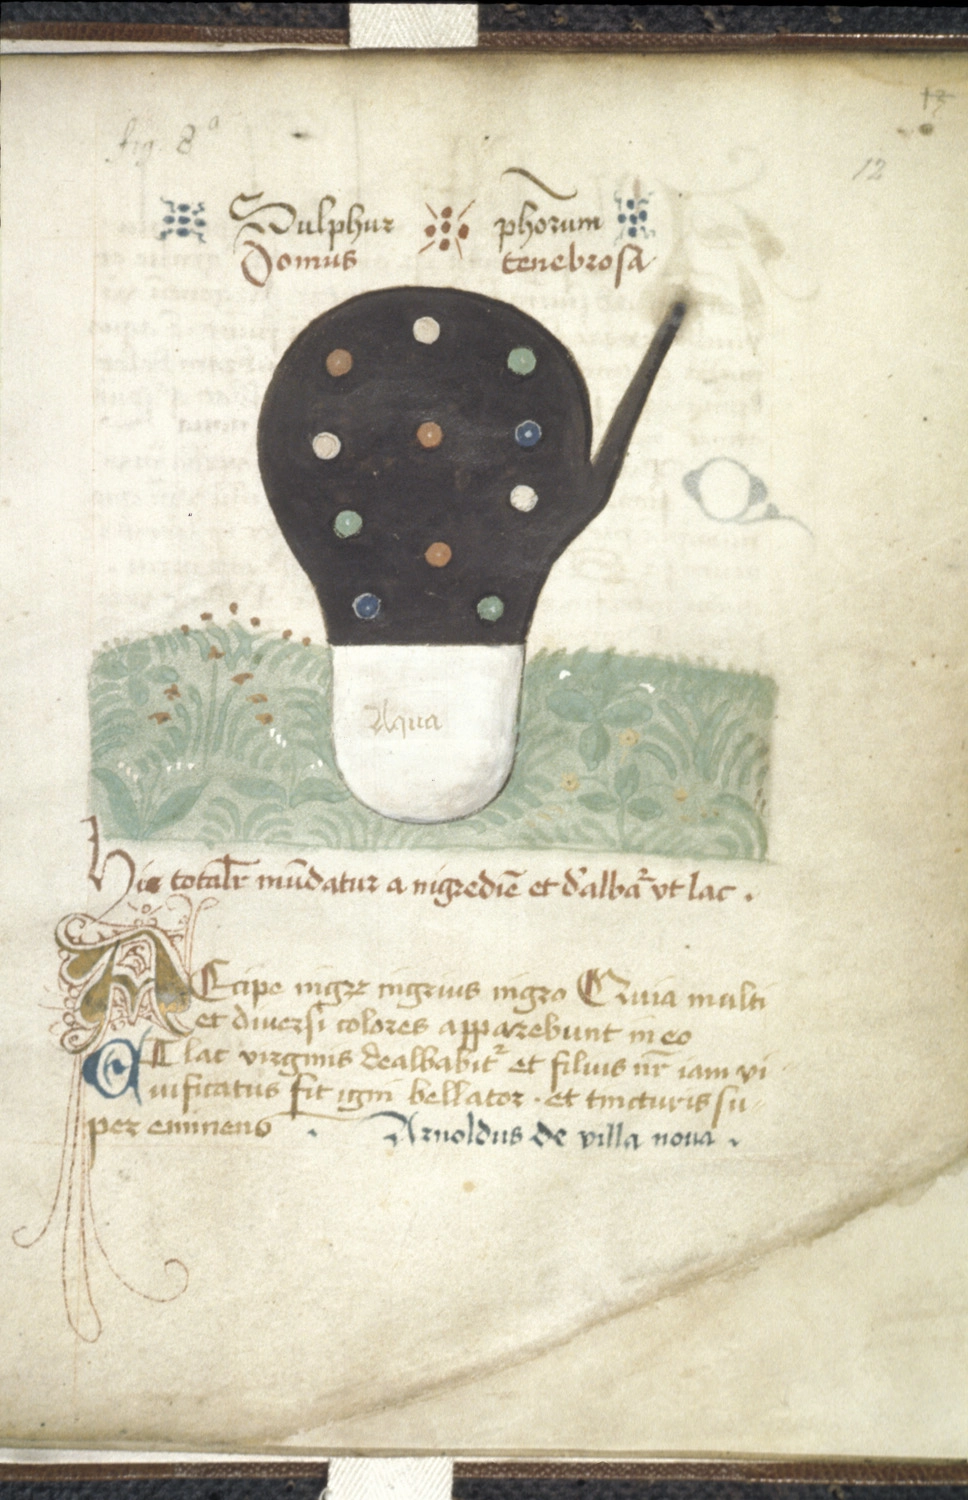 fig. 8a
12
Sulphur phōrum
Domus tenebrosa
Aqua
Hic totalr mūdatur a nigrediē et d'albar vt lac.
Accipe nigrum nigrius nigro Quia multi
et diuersi colores apparebunt in eo
At lac virginis dealbabitr et filius nr̄ iam vi
uificatus fit igni bellator · et tincturis su
per eminens . Arnoldus de villa noua .